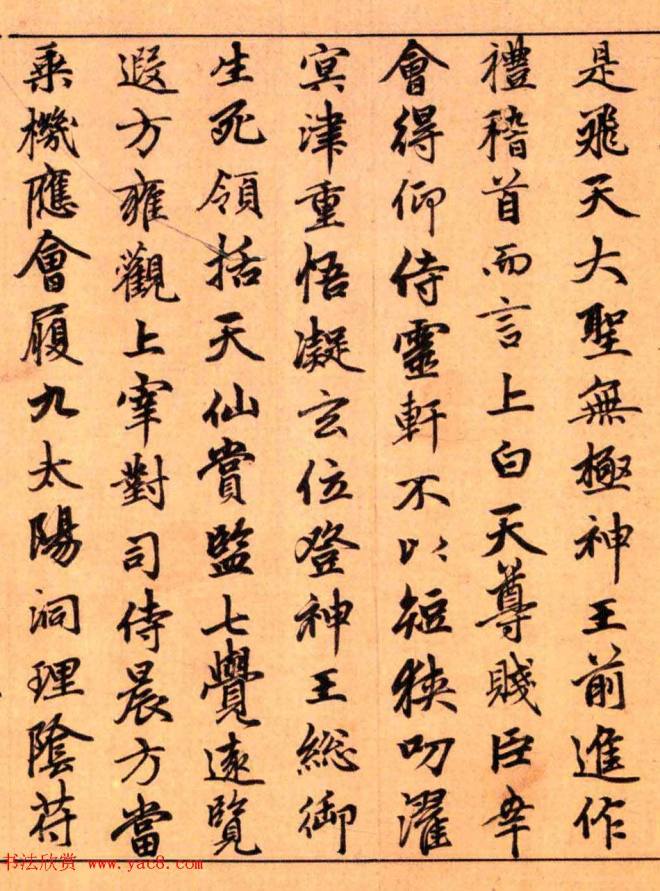 是飛天大聖無極神王前進作
禮稽首而言上白天尊賤臣幸
會得仰侍靈軒不以短狹叨濯
冥津重悟凝玄位登神王總御
生死領括天仙賞監七覺遠覽
遐方雍觀上宰對司侍晨方當
乘機應會履九太陽洞理陰苻
书法欣赏 www.yac8.com